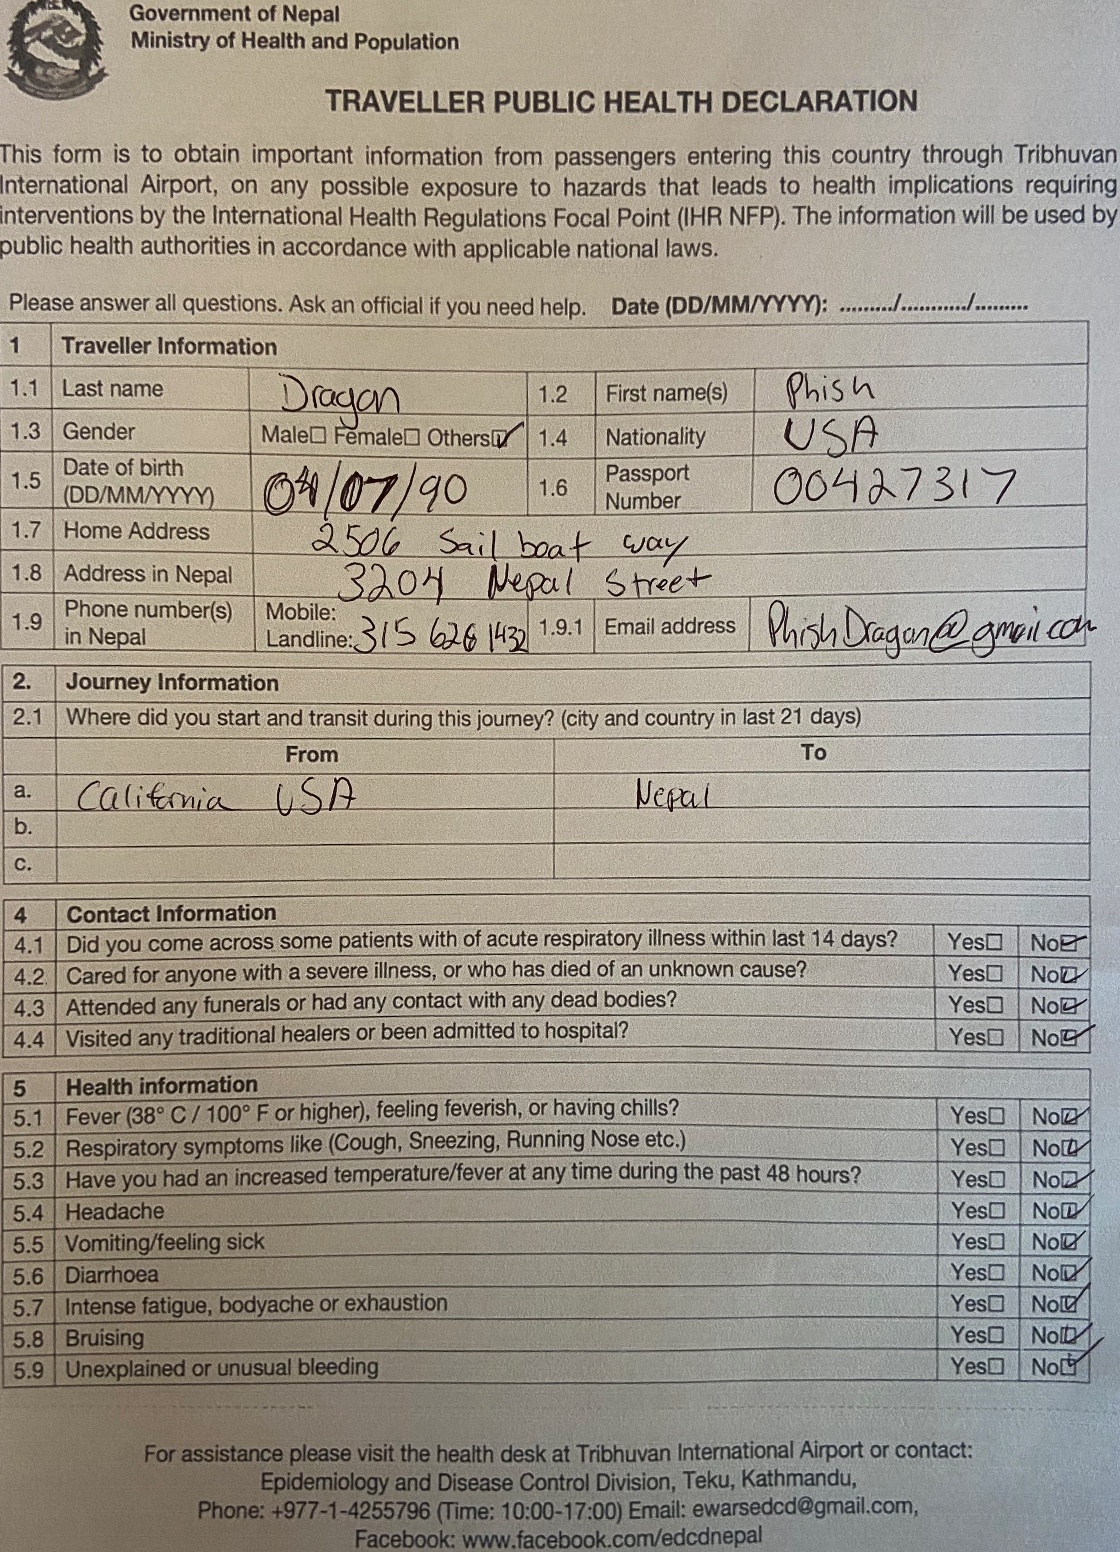 Government of Nepal
Ministry of Health and Population
TRAVELLER PUBLIC HEALTH DECLARATION
This form is to obtain important information from passengers entering this country through Tribhuvan
International Airport, on any possible exposure to hazards that leads to health implications requiring
interventions by the International Health Regulations Focal Point (IHR NFP). The information will be used by
public health authorities in accordance with applicable national laws.
Please answer all questions. Ask an official if you need help. Date (DD/MM/YYYY): ........./.........../.........
1 Traveller Information
1.1 Last name Dragon 1.2 First name(s) Phish
1.3 Gender Male☐ Female☐ Others☑ 1.4 Nationality USA
1.5 Date of birth (DD/MM/YYYY) 04/07/90 1.6 Passport Number 00427317
1.7 Home Address 2506 Sail boat way
1.8 Address in Nepal 3204 Nepal Street
1.9 Phone number(s) in Nepal Mobile: Landline: 315 626 1432 1.9.1 Email address PhishDragon@gmail.com
2. Journey Information
2.1 Where did you start and transit during this journey? (city and country in last 21 days)
From To
a. California USA Nepal
b.
c.
4 Contact Information
4.1 Did you come across some patients with of acute respiratory illness within last 14 days? Yes☐ No☑
4.2. Cared for anyone with a severe illness, or who has died of an unknown cause? Yes☐ No☑
4.3 Attended any funerals or had any contact with any dead bodies? Yes☐ No☑
4.4 Visited any traditional healers or been admitted to hospital? Yes☐ No☑
5 Health information
5.1 Fever (38° C / 100° F or higher), feeling feverish, or having chills? Yes☐ No☑
5.2 Respiratory symptoms like (Cough, Sneezing, Running Nose etc.) Yes☐ No☑
5.3 Have you had an increased temperature/fever at any time during the past 48 hours? Yes☐ No☑
5.4 Headache Yes☐ No☑
5.5 Vomiting/feeling sick Yes☐ No☑
5.6 Diarrhoea Yes☐ No☑
5.7 Intense fatigue, bodyache or exhaustion Yes☐ No☑
5.8 Bruising Yes☐ No☑
5.9 Unexplained or unusual bleeding Yes☐ No☑
For assistance please visit the health desk at Tribhuvan International Airport or contact:
Epidemiology and Disease Control Division, Teku, Kathmandu,
Phone: +977-1-4255796 (Time: 10:00-17:00) Email: ewarsedcd@gmail.com,
Facebook: www.facebook.com/edcdnepal